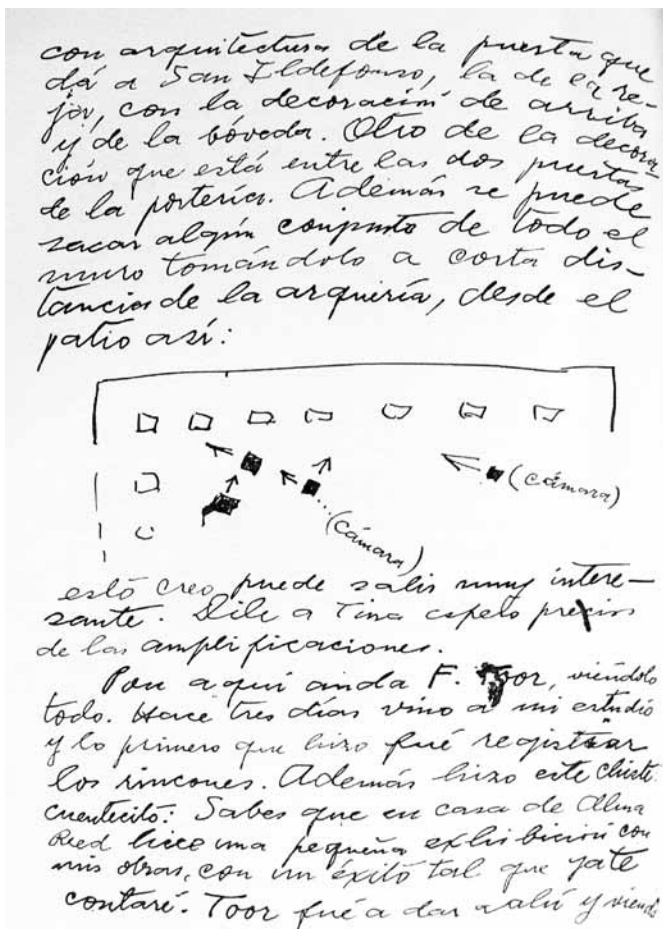 con arquitectura de la puerta que
dá a San Ildefonso, la de la re-
ja, con la decoración de arriba
y de la bóveda. Otro de la decora
ción que está entre las dos puertas
de la portería. Además se puede
sacar algún conjunto de todo el
muro tomándolo a corta dis-
tancia de la arquería, desde el
patio así:
(cámara)
(cámara)
esto creo puede salir muy intere-
sante. Dile a Tina espero precios
de las amplificaciones.
Por aquí anda F. Toor, viéndolo
todo. Hace tres días vino a mi estudio
y lo primero que hizo fué registrar
los rincones. Además hizo este chiste.
cuentecito: Sabes que en casa de Alma
Reed hice una pequeña exhibición con
mis obras, con un éxito tal que ya te
contaré. Toor fué a dar a alli y viendo